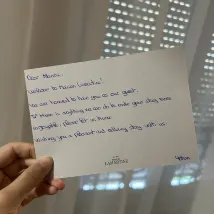 Dear Maria,
Welcome to Maison Laurentine!
We are honored to have you as our guest.
If there is anything we can do to make your stay more
enjoyable please let us know
Wishing you a pleasant and relaxing stay with us